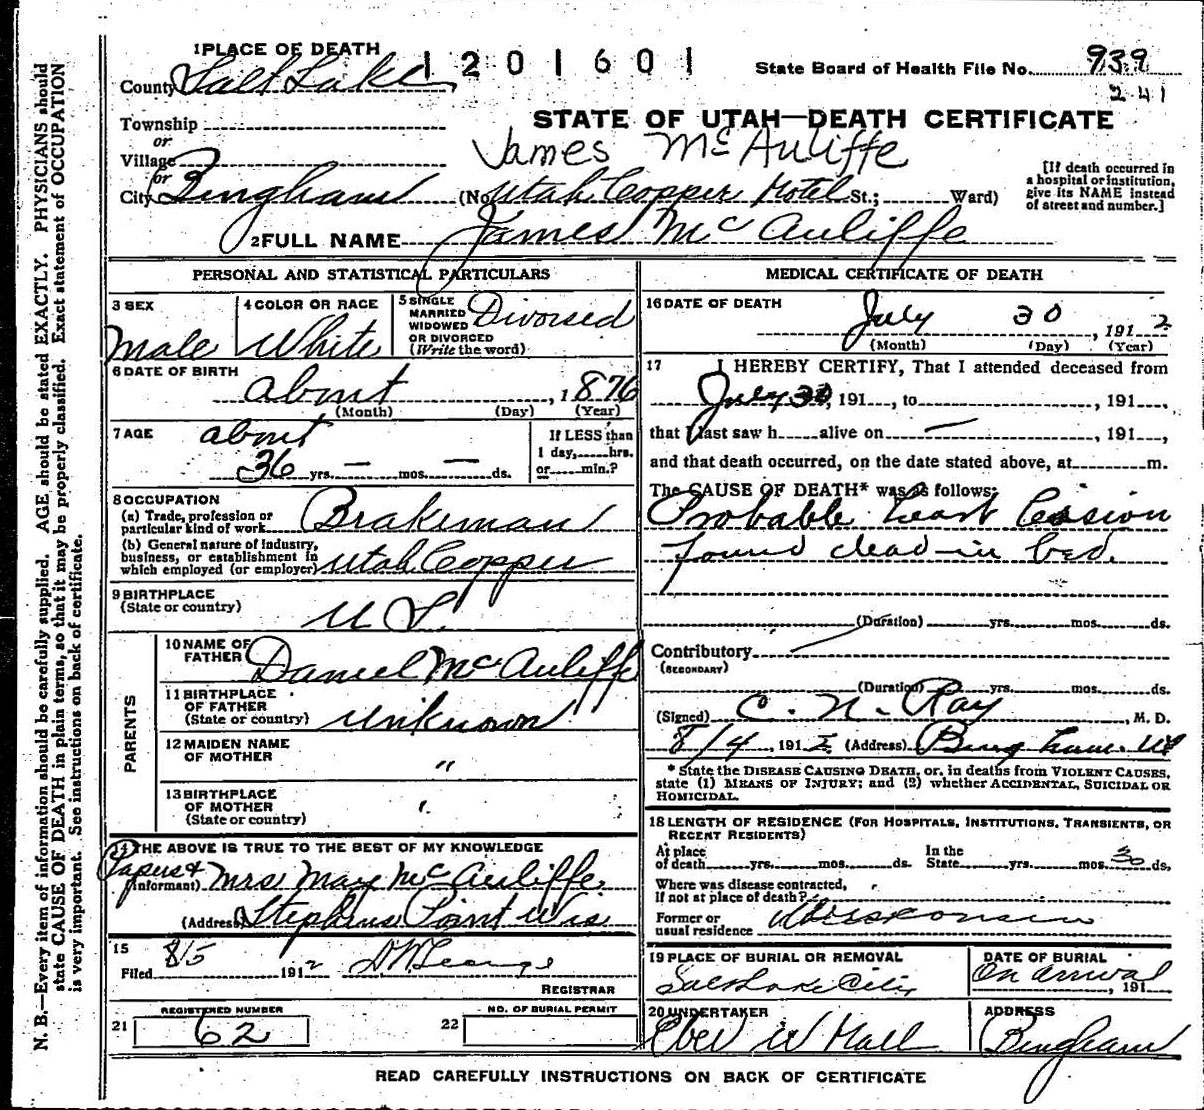 1 PLACE OF DEATH
1201601
State Board of Health File No. 939
241
County Salt Lake
STATE OF UTAH—DEATH CERTIFICATE
Township
or
Village
James McAuliffe
[If death occurred in a hospital or institution, give its NAME instead of street and number.]
or
City Bingham (No. Utah Copper Hotel St.; Ward)
2 FULL NAME James McAuliffe
PERSONAL AND STATISTICAL PARTICULARS
3 SEX
Male
4 COLOR OR RACE
White
5 SINGLE
MARRIED
WIDOWED
OR DIVORCED
(Write the word)
Divorsed
6 DATE OF BIRTH
about , 1876
(Month) (Day) (Year)
7 AGE
about
36 yrs. — mos. — ds.
If LESS than
1 day, hrs.
or min.?
8 OCCUPATION
(a) Trade, profession or
particular kind of work Brakeman
(b) General nature of industry,
business, or establishment in
which employed (or employer) Utah Copper
9 BIRTHPLACE
(State or country)
U S.
PARENTS
10 NAME OF
FATHER Daniel McAuliffe
11 BIRTHPLACE
OF FATHER
(State or country) Unknown
12 MAIDEN NAME
OF MOTHER "
13 BIRTHPLACE
OF MOTHER
(State or country)
14 THE ABOVE IS TRUE TO THE BEST OF MY KNOWLEDGE
Papers &
(Informant) Mrs May McAuliffe
(Address) Stephens Point Wis
15
Filed 8/5 1912
REGISTRAR
REGISTERED NUMBER
21 62
NO. OF BURIAL PERMIT
22
MEDICAL CERTIFICATE OF DEATH
16 DATE OF DEATH
July 30 , 1912
(Month) (Day) (Year)
17 I HEREBY CERTIFY, That I attended deceased from
July 30, 191 , to , 191 ,
that I last saw h alive on — , 191 ,
and that death occurred, on the date stated above, at m.
The CAUSE OF DEATH* was as follows:
Probable heart lesion
found dead in bed.
(Duration) yrs. mos. ds.
Contributory
(SECONDARY)
(Duration) yrs. mos. ds.
(Signed) C. N. Ray , M. D.
8/4 , 1912 (Address) Bingham. Ut
* State the DISEASE CAUSING DEATH, or, in deaths from VIOLENT CAUSES,
state (1) MEANS OF INJURY; and (2) whether ACCIDENTAL, SUICIDAL OR
HOMICIDAL.
18 LENGTH OF RESIDENCE (FOR HOSPITALS, INSTITUTIONS, TRANSIENTS, OR
RECENT RESIDENTS)
At place
of death yrs. mos. ds.
In the
State yrs. mos. 30 ds.
Where was disease contracted,
If not at place of death?
Former or
usual residence Wissconsin
19 PLACE OF BURIAL OR REMOVAL
Salt Lake City
DATE OF BURIAL
On arrival , 191
20 UNDERTAKER
Eber W Hall
ADDRESS
Bingham
READ CAREFULLY INSTRUCTIONS ON BACK OF CERTIFICATE
N. B.—Every item of information should be carefully supplied. AGE should be stated EXACTLY. PHYSICIANS should
state CAUSE OF DEATH in plain terms, so that it may be properly classified. Exact statement of OCCUPATION
is very important. See instructions on back of certificate.